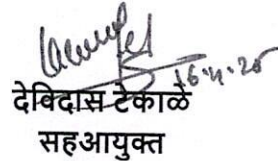 16.4.25
देविदास टेकाळे
सहआयुक्त